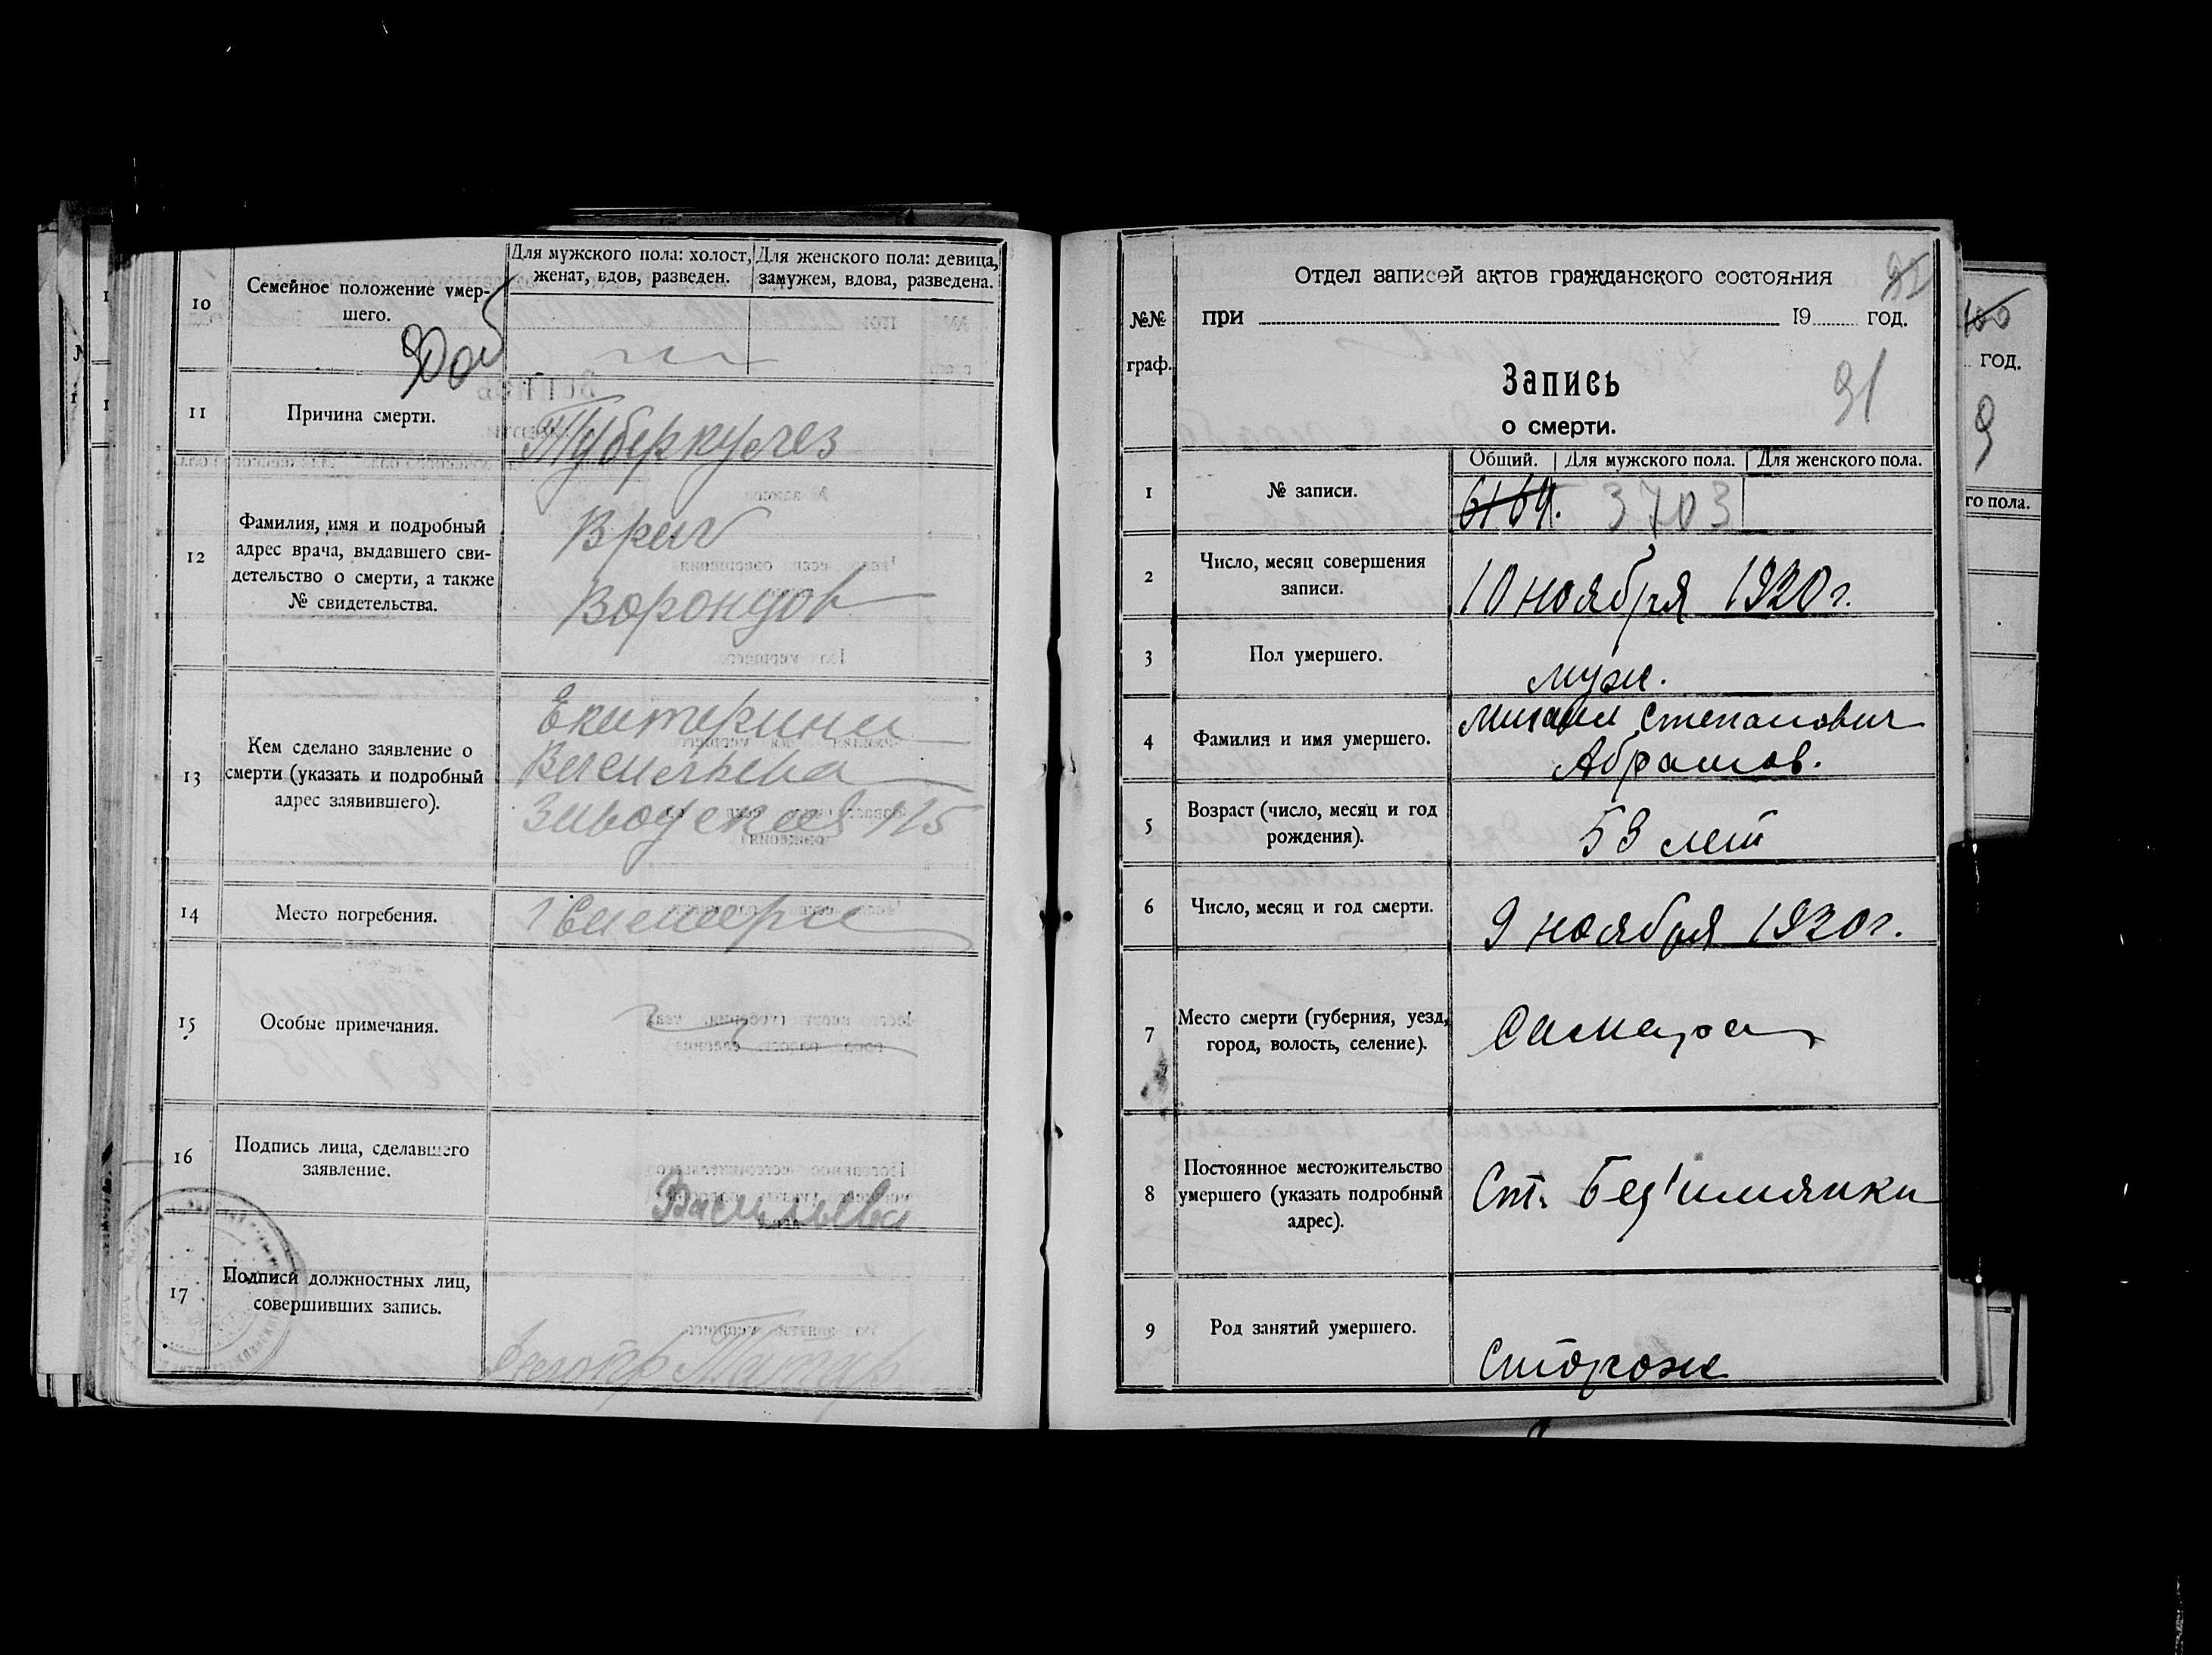 10
Семейное положение умер-
шего.
Для мужского пола: холост,
женат, вдов, разведен.
Для женского пола: девица,
замужем, вдова, разведена.
11
Причина смерти.
Туберкулез
12
Фамилия, имя и подробный
адрес врача, выдавшего сви-
детельство о смерти, а также
№ свидетельства.
Врач
13
Кем сделано заявление о
смерти (указать и подробный
адрес заявившего).
Екатерина
Васильева
Заводская 115
14
Место погребения.
г Самара
15
Особые примечания.
16
Подпись лица, сделавшего
заявление.
Васильева
17
Подписи должностных лиц,
совершивших запись.
№№
граф.
Отдел записей актов гражданского состояния
при 19 год.
Запись
о смерти.
91
1
№ записи.
Общий. Для мужского пола. Для женского пола.
6169. 3703
2
Число, месяц совершения
записи.
10 ноября 1920 г.
3
Пол умершего.
муж.
4
Фамилия и имя умершего.
Михаил Степанович
Абрамов.
5
Возраст (число, месяц и год
рождения).
53 лет
6
Число, месяц и год смерти.
9 ноября 1920 г.
7
Место смерти (губерния, уезд,
город, волость, селение).
Самара
8
Постоянное местожительство
умершего (указать подробный
адрес).
Ст.
9
Род занятий умершего.
Сторож
год.
9
го пола.